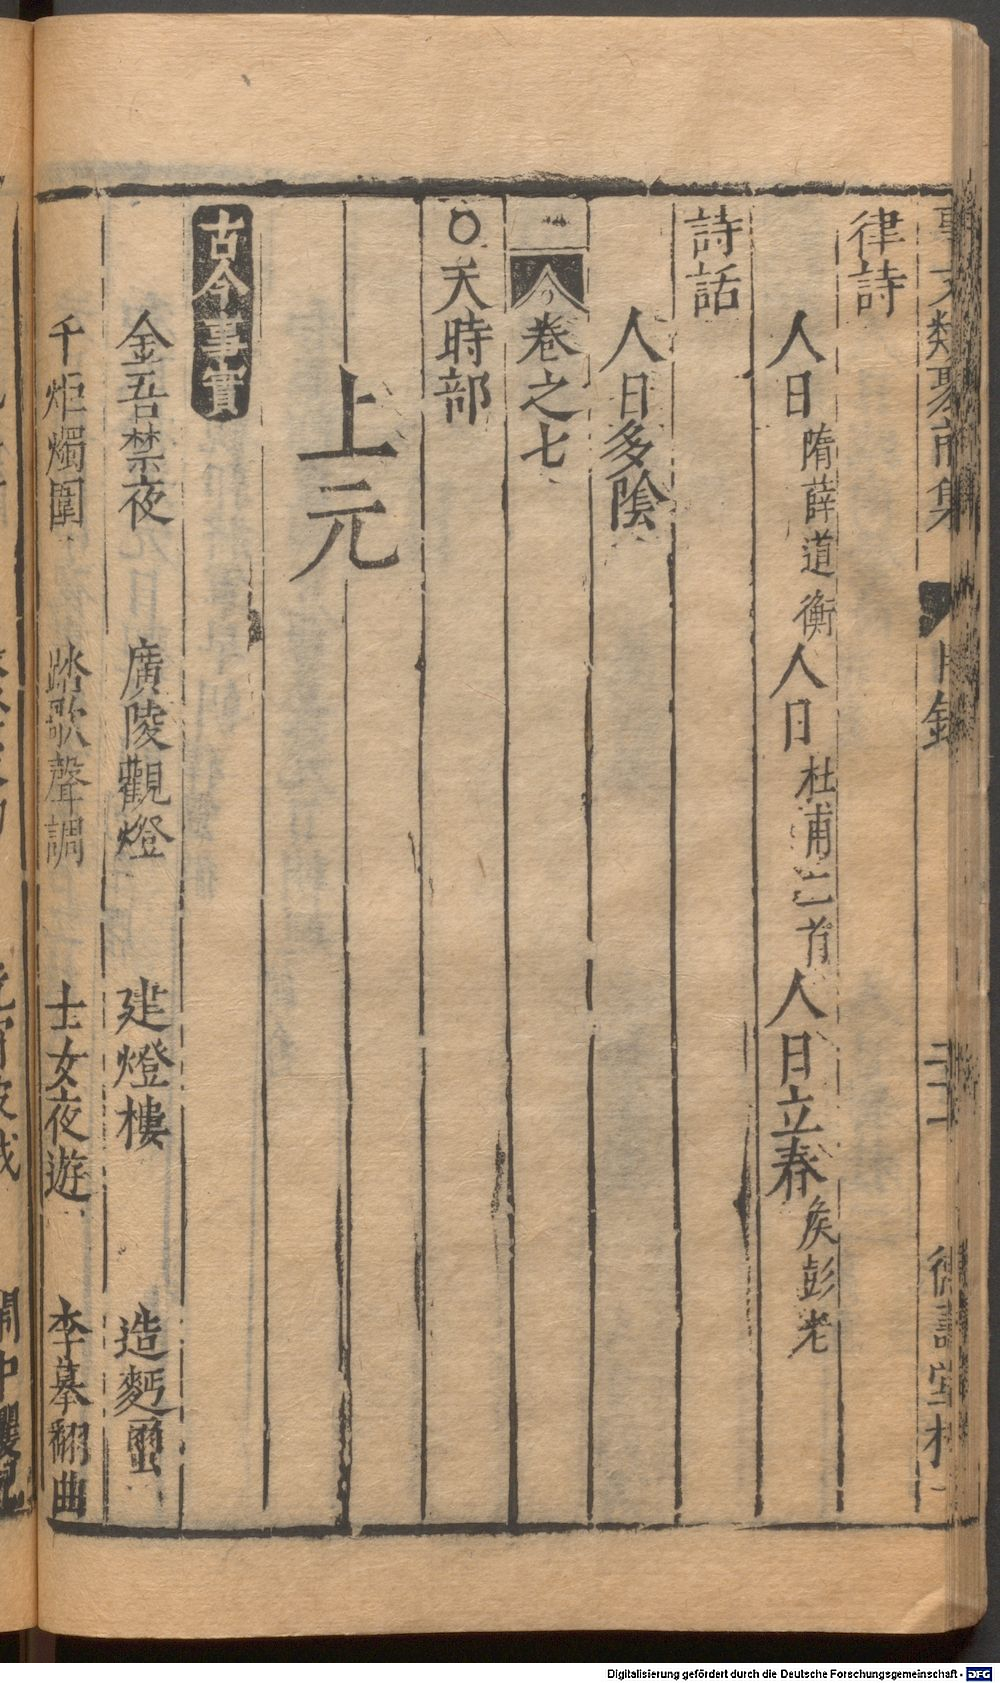 事文類聚前集 目錄 二十二 德壽堂梓
律詩
人日隋薛道衡人日杜甫二首人日立春矦彭老
詩話
人日多陰
卷之七
○天時部
上元
古今事實
金吾禁夜 廣陵觀燈 建燈樓 造麪蠒
千炬燭圍 踏歌聲調 士女夜遊 李摹翻曲
Digitalisierung gefördert durch die Deutsche Forschungsgemeinschaft - DFG